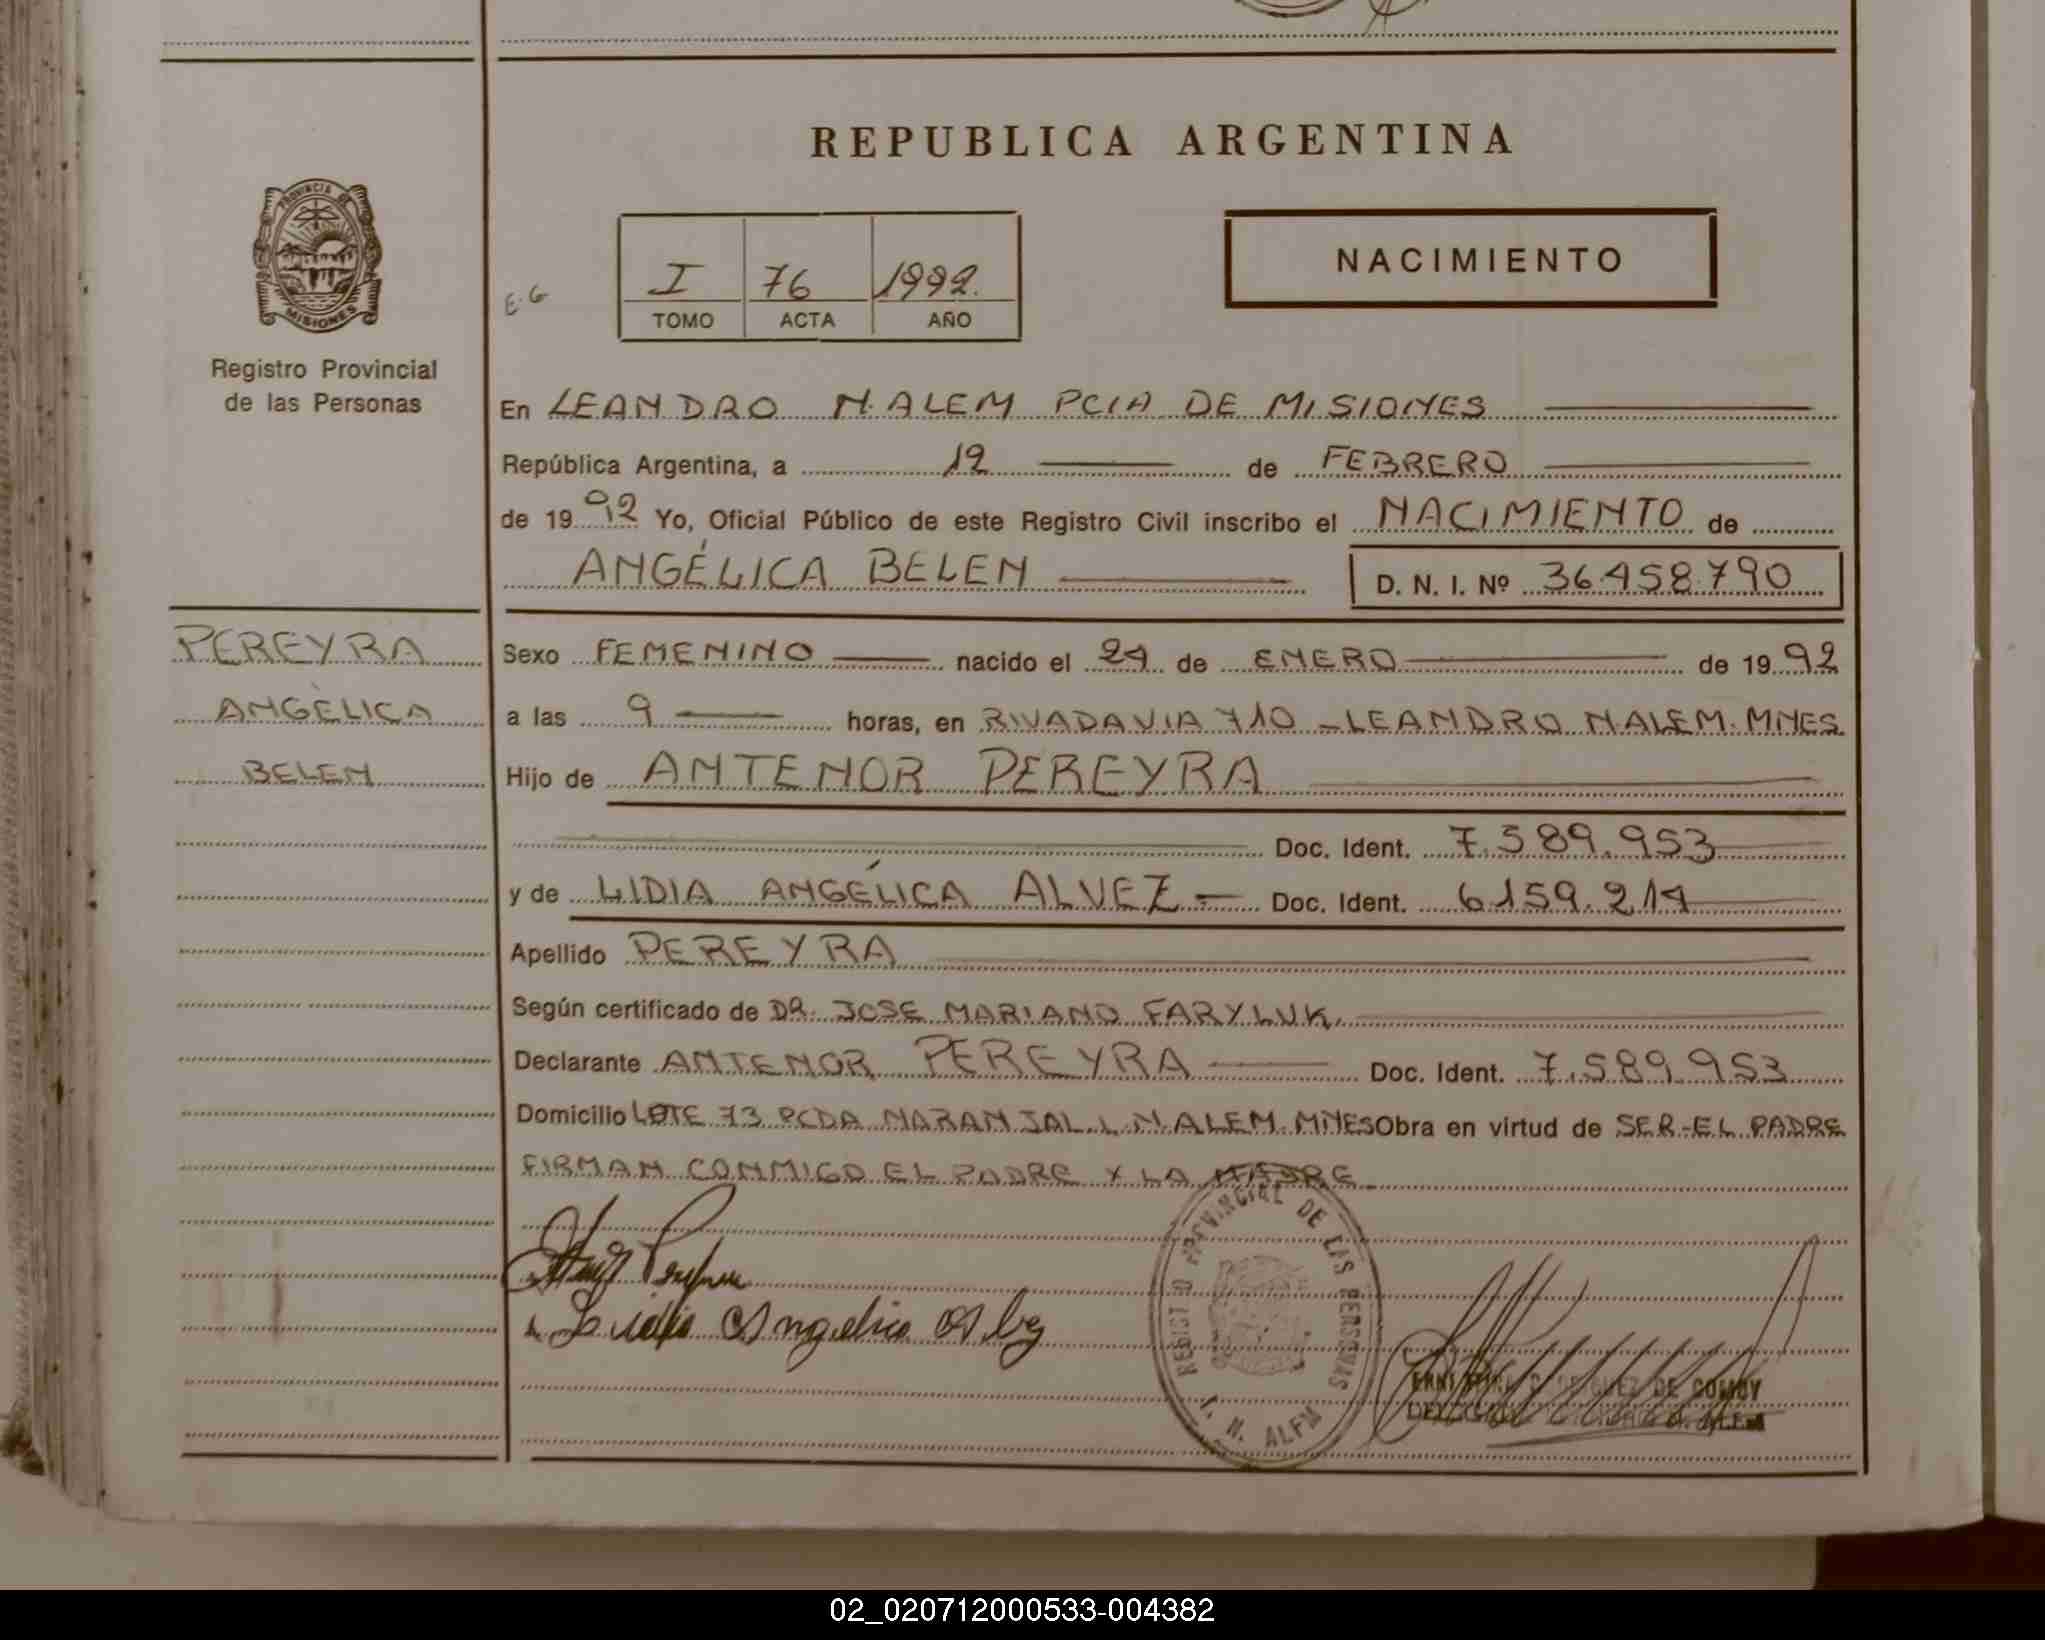 REPUBLICA ARGENTINA
PROVINCIA DE
MISIONES
Registro Provincial
de las Personas
E.G
I 76 1992.
TOMO ACTA AÑO
NACIMIENTO
En LEANDRO N. ALEM PCIA DE MISIONES
República Argentina, a 12 de FEBRERO
de 19 92 Yo, Oficial Público de este Registro Civil inscribo el NACIMIENTO de
ANGÉLICA BELEN D. N. I. Nº 36.458.790
PEREYRA
ANGÉLICA
BELEN
Sexo FEMENINO nacido el 24 de ENERO de 19 92
a las 9 horas, en RIVADAVIA 710 - LEANDRO N. ALEM. MNES.
Hijo de ANTENOR PEREYRA
Doc. Ident. 7.589.953
y de LIDIA ANGÉLICA ALVEZ - Doc. Ident. 6.159.214
Apellido PEREYRA
Según certificado de DR. JOSE MARIANO FARYLUK.
Declarante ANTENOR PEREYRA Doc. Ident. 7.589.953
Domicilio LOTE 73 PCDA NARANJAL L. N. ALEM. MNES Obra en virtud de SER-EL PADRE
FIRMAN CONMIGO EL PADRE Y LA MADRE
Lidia Angelica
REGISTRO PROVINCIAL DE LAS PERSONAS
L. N. ALEM
DE COMOY
02_020712000533-004382